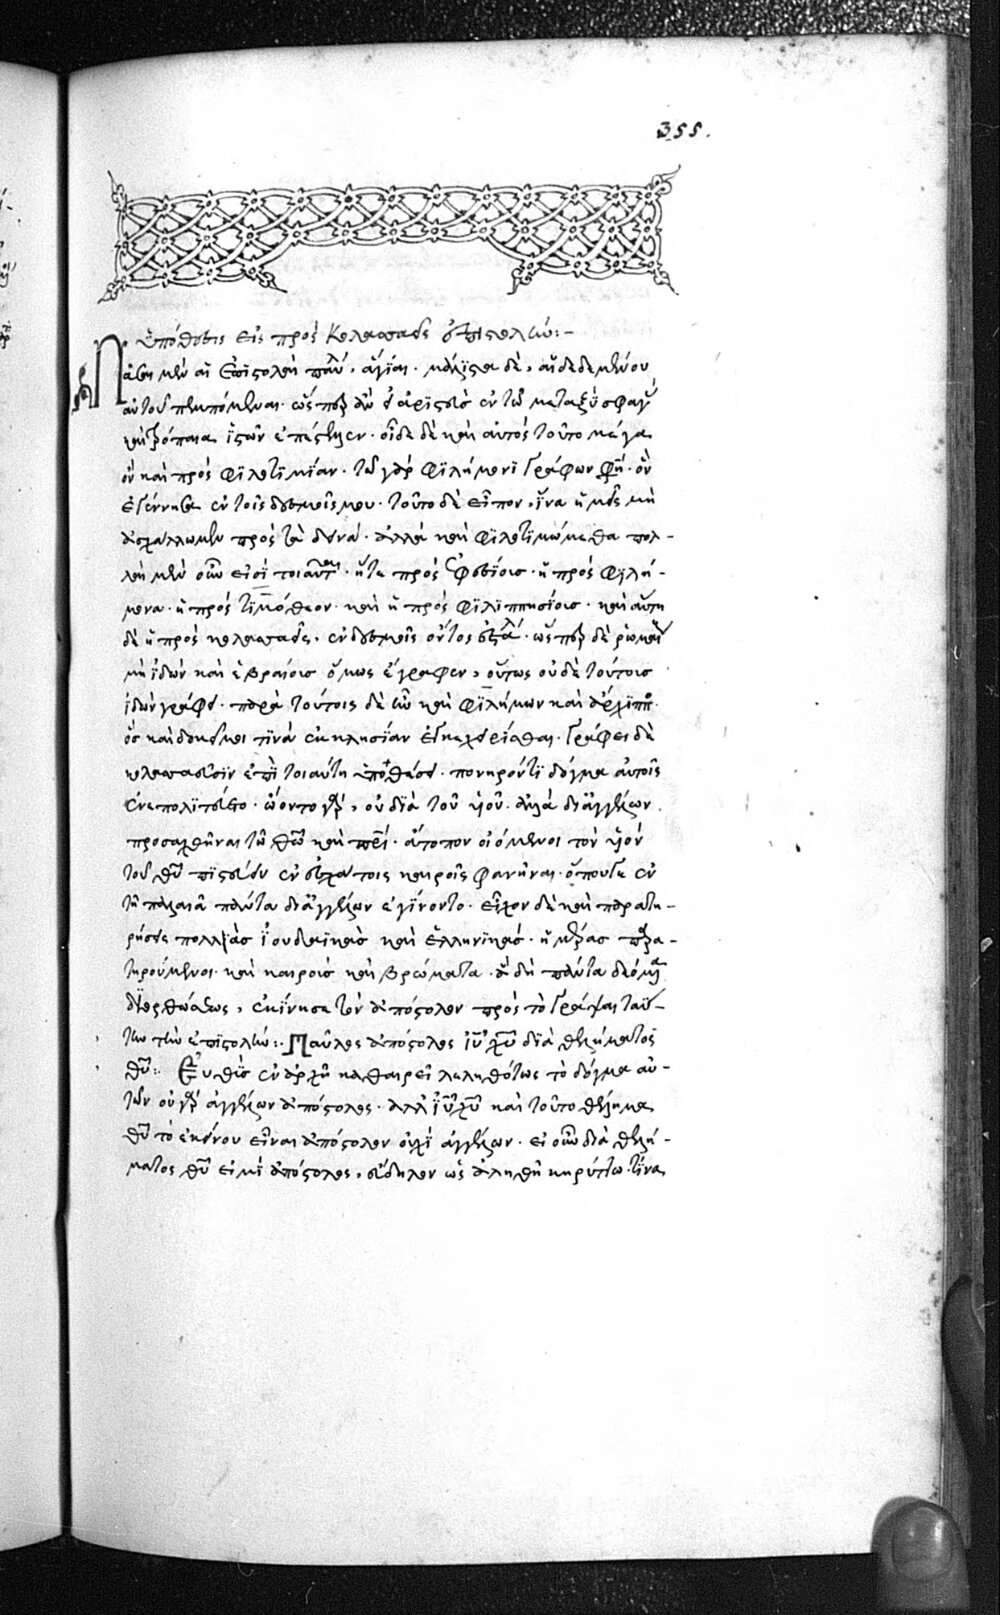 355.
Ὑπόθεσις εἰς πρὸς Κολασσαεῖς ἐπιστολήν:-
Πᾶσαι μὲν αἱ ἐπιστολαὶ παύλ, ἅγιαι. μάλιστα δὲ, αἱ δεδεμένου
αὐτοῦ πεμπόμεναι. ὥσπερ ἂν εἰ ἀριστεὺς ἐν τῷ μεταξὺ σφαγ
καὶ τρόπαια ἱστῶν ἐπέστελλεν. οἶδε δὲ καὶ αὐτὸς τοῦτο μέγα
ὂν καὶ πρὸς φιλοτιμίαν. τῷ γὰρ φιλήμονι γράφων φη. ὃν
ἐγέννησα ἐν τοῖς δεσμοῖς μου. τοῦτο δὲ εἶπον, ἵνα ἡμεῖς μὴ
ἀσχάλλωμεν πρὸς τὰ δεινά. ἀλλὰ καὶ φιλοτιμώμεθα πολ-
λαὶ μὲν οὖν εἰσὶ τοιαῦται. ἥτε πρὸς ἐφεσίοις. ἡ πρὸς φιλή-
μονα. ἡ πρὸς τιμόθεον. καὶ ἡ πρὸς φιλιππησίοις. καὶ αὕτη
δὲ ἡ πρὸς κολασσαεῖς. ἐν δεσμοῖς οὗτος ἐστάλ. ὥσπερ δὲ ῥωμαί
μὴ ἰδὼν καὶ ἑβραίοις ὅμως ἔγραφεν, οὕτως οὐδὲ τούτοις
ἰδὼν γράφει. παρὰ τούτοις δὲ ἦν καὶ φιλήμων καὶ ἀρχιππ.
ὃς καὶ δοκεῖ μοι τινὰ ἐκκλησίαν ἐγκεχειρίσθαι. γράφει δὲ
κολασσαεῦσιν ἐπὶ τοιαύτη ὑποθέσει. πονηρόν τι δόγμα αὐτοῖς
ἐνεπολιτεύετο. ᾤοντο γὰρ, οὐ διὰ τοῦ υἱοῦ. ἀλλὰ δι ἀγγέλων.
προσαχθῆναι τῶ θῶ καὶ πρί. ἄτοπον οἰόμενοι τὸν υἱὸν
τοῦ θυ πιστεύειν ἐν ἐσχάτοις καιροῖς φανῆναι. ὅπου γε ἐν
τῆ παλαιᾶ πάντα δι ἀγγέλων ἐγίνοντο. εἶχον δὲ καὶ παρατη-
ρήσεις πολλὰς ἰουδαϊκὰς καὶ ἑλληνικάς. ἡμέρας παρα-
τηρούμενοι. καὶ καιροὺς καὶ βρώματα. ἃ δὴ πάντα δεόμενα
διορθώσεως, ἐκίνησε τὸν ἀπόστολον πρὸς τὸ γράψαι ταύ-
την τὴν ἐπιστολήν:. Παῦλος ἀπόστολος ιυ χυ διὰ θελήματος
θυ:. Εὐθὺς ἐν ἀρχῆ καθαιρεῖ λεληθότως τὸ δόγμα αὐ-
τῶν οὐ γὰρ ἀγγέλων ἀπόστολος. ἀλλ ιυ χυ καὶ τοῦτο θέλημα
θυ τὸ ἐκείνου εἶναι ἀπόστολον οὐχὶ ἀγγέλων. εἰ οὖν διὰ θελή-
ματος θυ εἰμὶ ἀπόστολος, εὔδηλον ὡς ἀληθῆ κηρύττω. τίνα